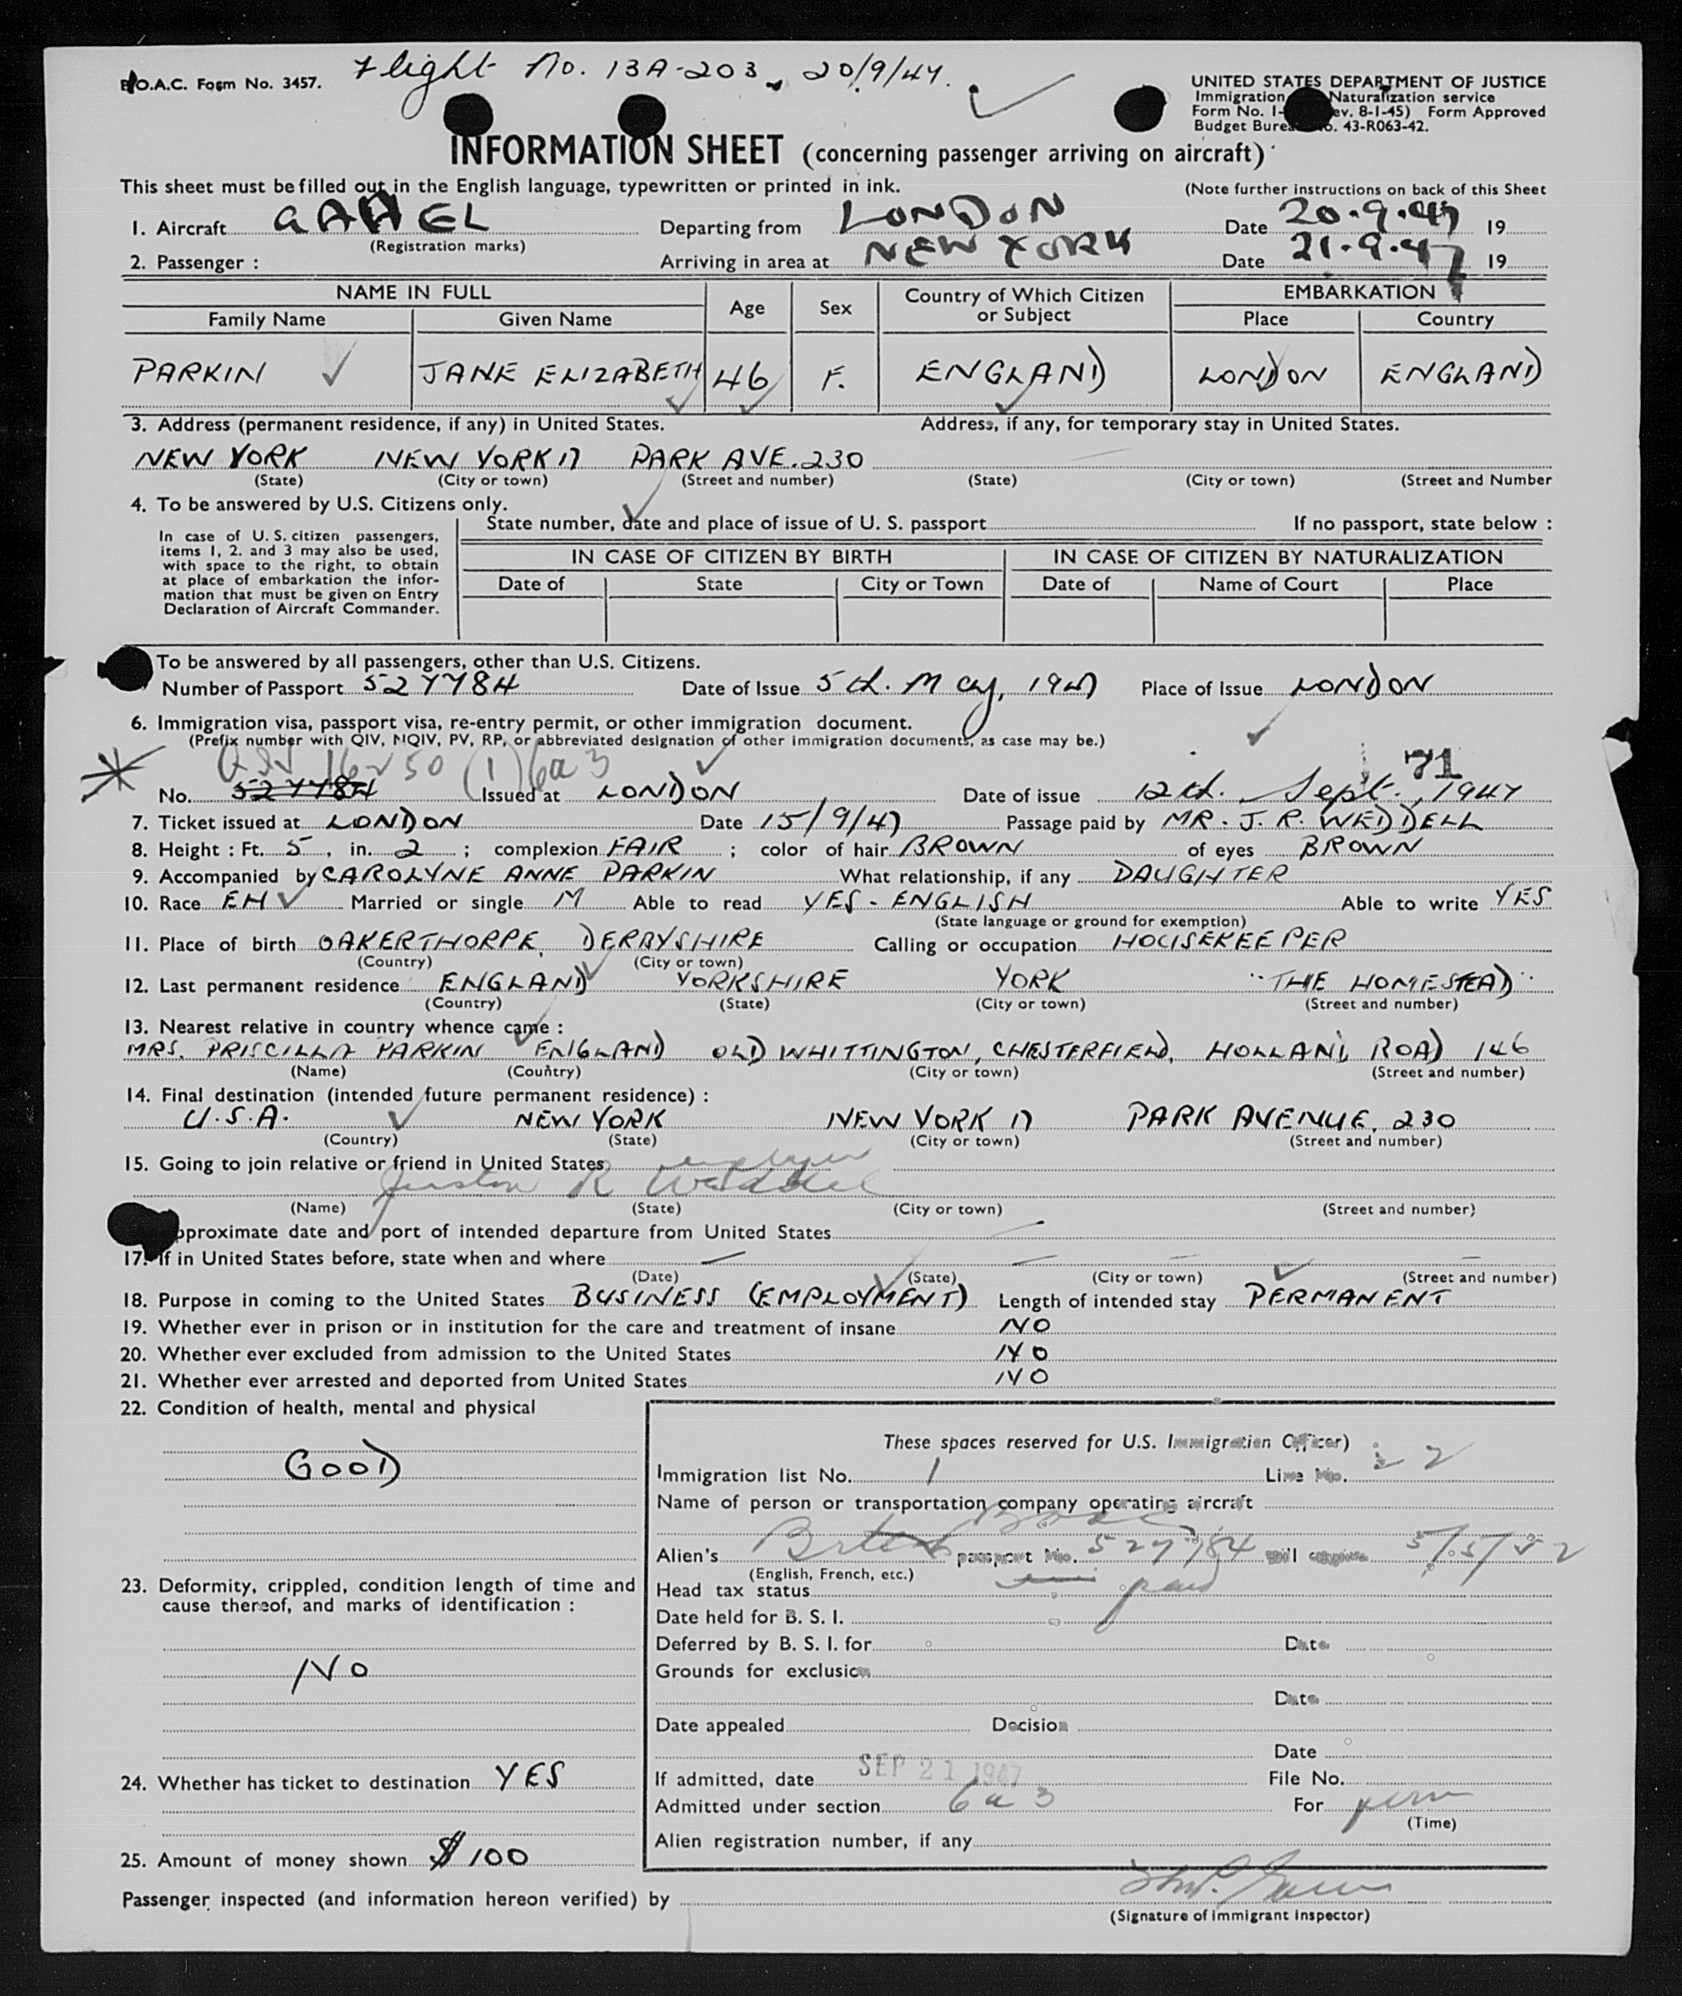 B.O.A.C. Form No. 3457.
Flight No. 13A-203, 20/9/47.
UNITED STATES DEPARTMENT OF JUSTICE
Immigration Naturalization service
Form No. I- ev. 8-1-45) Form Approved
Budget Burea o. 43-R063-42.
INFORMATION SHEET (concerning passenger arriving on aircraft)
This sheet must be filled out in the English language, typewritten or printed in ink. (Note further instructions on back of this Sheet
1. Aircraft GAHEL Departing from LONDON Date 20.9.47 19
(Registration marks)
2. Passenger : Arriving in area at NEW YORK Date 21.9.47 19
NAME IN FULL Age Sex Country of Which Citizen or Subject EMBARKATION
Family Name Given Name Place Country
PARKIN JANE ELIZABETH 46 F. ENGLAND LONDON ENGLAND
3. Address (permanent residence, if any) in United States. Address, if any, for temporary stay in United States.
NEW YORK NEW YORK 17 PARK AVE. 230
(State) (City or town) (Street and number) (State) (City or town) (Street and Number
4. To be answered by U.S. Citizens only.
State number, date and place of issue of U. S. passport If no passport, state below :
In case of U. S. citizen passengers,
items 1, 2. and 3 may also be used,
with space to the right, to obtain
at place of embarkation the infor-
mation that must be given on Entry
Declaration of Aircraft Commander.
IN CASE OF CITIZEN BY BIRTH IN CASE OF CITIZEN BY NATURALIZATION
Date of State City or Town Date of Name of Court Place
To be answered by all passengers, other than U.S. Citizens.
Number of Passport 527784 Date of Issue 5th. May, 1947 Place of Issue LONDON
6. Immigration visa, passport visa, re-entry permit, or other immigration document.
(Prefix number with QIV, NQIV, PV, RP, or abbreviated designation of other immigration documents, as case may be.)
16250 (1) 6a3 71
No. 527784 Issued at LONDON Date of issue 12th. Sept., 1947
7. Ticket issued at LONDON Date 15/9/47 Passage paid by MR. J. R. WEDDELL
8. Height : Ft. 5, in. 2 ; complexion FAIR ; color of hair BROWN of eyes BROWN
9. Accompanied by CAROLYNE ANNE PARKIN What relationship, if any DAUGHTER
10. Race EH Married or single M Able to read YES - ENGLISH Able to write YES
(State language or ground for exemption)
11. Place of birth OAKERTHORPE, DERBYSHIRE Calling or occupation HOUSEKEEPER
(Country) (City or town)
12. Last permanent residence ENGLAND YORKSHIRE YORK "THE HOMESTEAD"
(Country) (State) (City or town) (Street and number)
13. Nearest relative in country whence came :
MRS. PRISCILLA PARKIN ENGLAND OLD WHITTINGTON, CHESTERFIELD, HOLLAND ROAD 146
(Name) (Country) (City or town) (Street and number)
14. Final destination (intended future permanent residence) :
U.S.A. NEW YORK NEW YORK 17 PARK AVENUE, 230
(Country) (State) (City or town) (Street and number)
15. Going to join relative or friend in United States employer
R Weddell
(Name) (State) (City or town) (Street and number)
pproximate date and port of intended departure from United States
17. If in United States before, state when and where
(Date) (State) (City or town) (Street and number)
18. Purpose in coming to the United States BUSINESS (EMPLOYMENT) Length of intended stay PERMANENT
19. Whether ever in prison or in institution for the care and treatment of insane NO
20. Whether ever excluded from admission to the United States NO
21. Whether ever arrested and deported from United States NO
22. Condition of health, mental and physical
GOOD
23. Deformity, crippled, condition length of time and
cause thereof, and marks of identification :
NO
24. Whether has ticket to destination YES
25. Amount of money shown $100
These spaces reserved for U.S. Immigration Officer)
Immigration list No. 1 Line No. 2
Name of person or transportation company operating aircraft
BOAC
Alien's British passport No. 527784 will expire 5/5/52
(English, French, etc.)
Head tax status paid
Date held for B. S. I.
Deferred by B. S. I. for Date
Grounds for exclusion
Date
Date appealed Decision
Date
If admitted, date SEP 21 1947 File No.
Admitted under section 6a3 For perm
(Time)
Alien registration number, if any
Passenger inspected (and information hereon verified) by
(Signature of Immigrant Inspector)